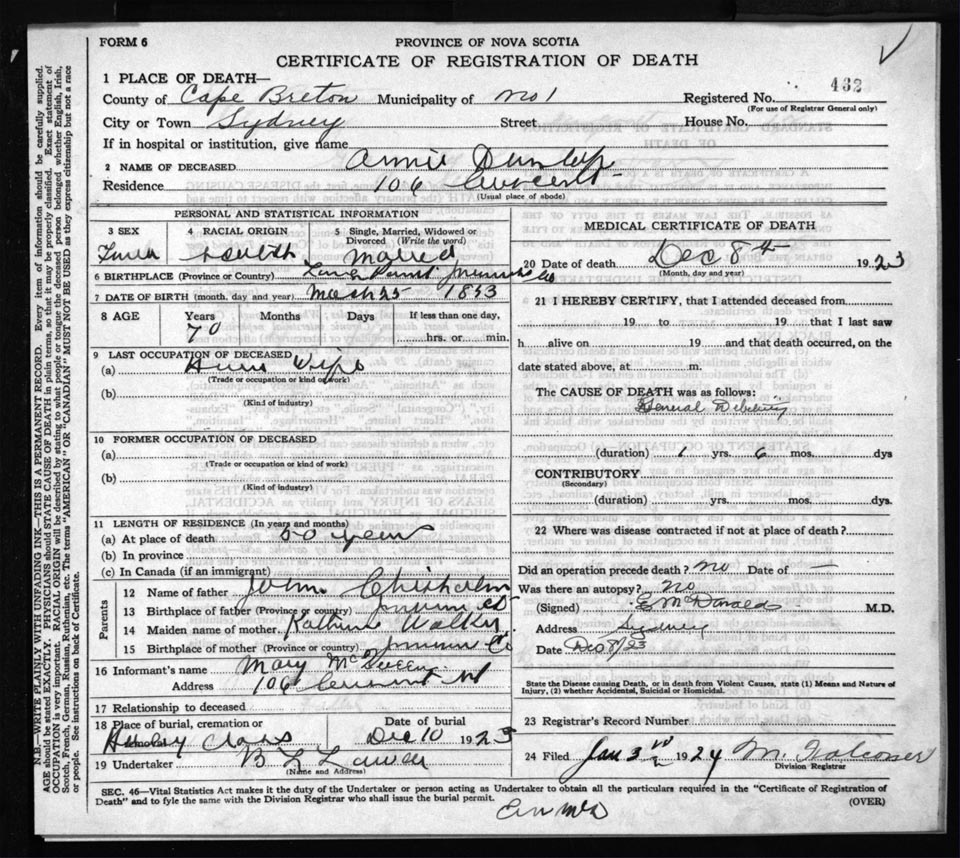 FORM 6
PROVINCE OF NOVA SCOTIA
CERTIFICATE OF REGISTRATION OF DEATH
1 PLACE OF DEATH—
432
County of Cape Breton Municipality of No 1 Registered No.
(For use of Registrar General only)
City or Town Sydney Street House No.
If in hospital or institution, give name
2 NAME OF DECEASED Annie Dunlop
Residence 106
(Usual place of abode)
PERSONAL AND STATISTICAL INFORMATION
3 SEX 4 RACIAL ORIGIN 5 Single, Married, Widowed or Divorced (Write the word)
6 BIRTHPLACE (Province or Country)
7 DATE OF BIRTH (month, day and year) March 25 1853
8 AGE Years Months Days If less than one day,
70 hrs. or min.
9 LAST OCCUPATION OF DECEASED
(a) House Wife
(Trade or occupation or kind of work)
(b)
(Kind of industry)
10 FORMER OCCUPATION OF DECEASED
(a)
(Trade or occupation or kind of work)
(b)
(Kind of industry)
11 LENGTH OF RESIDENCE (In years and months)
(a) At place of death 50 years
(b) In province
(c) In Canada (if an immigrant)
Parents
12 Name of father John Chisholm
13 Birthplace of father (Province or country)
14 Maiden name of mother Walker
15 Birthplace of mother (Province or country)
16 Informant's name Mary McQueen
Address 106
17 Relationship to deceased
18 Place of burial, cremation or Date of burial
Dec 10 1923
19 Undertaker
(Name and Address)
MEDICAL CERTIFICATE OF DEATH
20 Date of death Dec 8th 1923
(Month, day and year)
21 I HEREBY CERTIFY, that I attended deceased from
19 to 19 that I last saw
h alive on 19 and that death occurred, on the
date stated above, at m.
The CAUSE OF DEATH was as follows:
General Debility
(duration) 1 yrs. 6 mos. dys
CONTRIBUTORY
(Secondary)
(duration) yrs. mos. dys.
22 Where was disease contracted if not at place of death?
Did an operation precede death? no Date of —
Was there an autopsy? No
(Signed) E McDonald M.D.
Address Sydney
Date Dec 8/23
State the Disease causing Death, or in death from Violent Causes, state (1) Means and Nature of
Injury, (2) whether Accidental, Suicidal or Homicidal.
23 Registrar's Record Number
24 Filed Jan 3rd 1924
Division Registrar
SEC. 46—Vital Statistics Act makes it the duty of the Undertaker or person acting as Undertaker to obtain all the particulars required in the "Certificate of Registration of
Death" and to fyle the same with the Division Registrar who shall issue the burial permit. (OVER)
N.B.—WRITE PLAINLY WITH UNFADING INK—THIS IS A PERMANENT RECORD. Every item of information should be carefully supplied.
AGE should be stated EXACTLY. PHYSICIANS should STATE CAUSE OF DEATH in plain terms, so that it may be properly classified. Exact statement of
OCCUPATION is very important. RACIAL ORIGIN will be described by stating to what people or tongue the deceased person belonged, whether English, Irish,
Scotch, French, German, Russian, Ruthenian, etc. The terms "AMERICAN" OR "CANADIAN" MUST NOT BE USED as they express citizenship but not a race
or people. See instructions on back of Certificate.